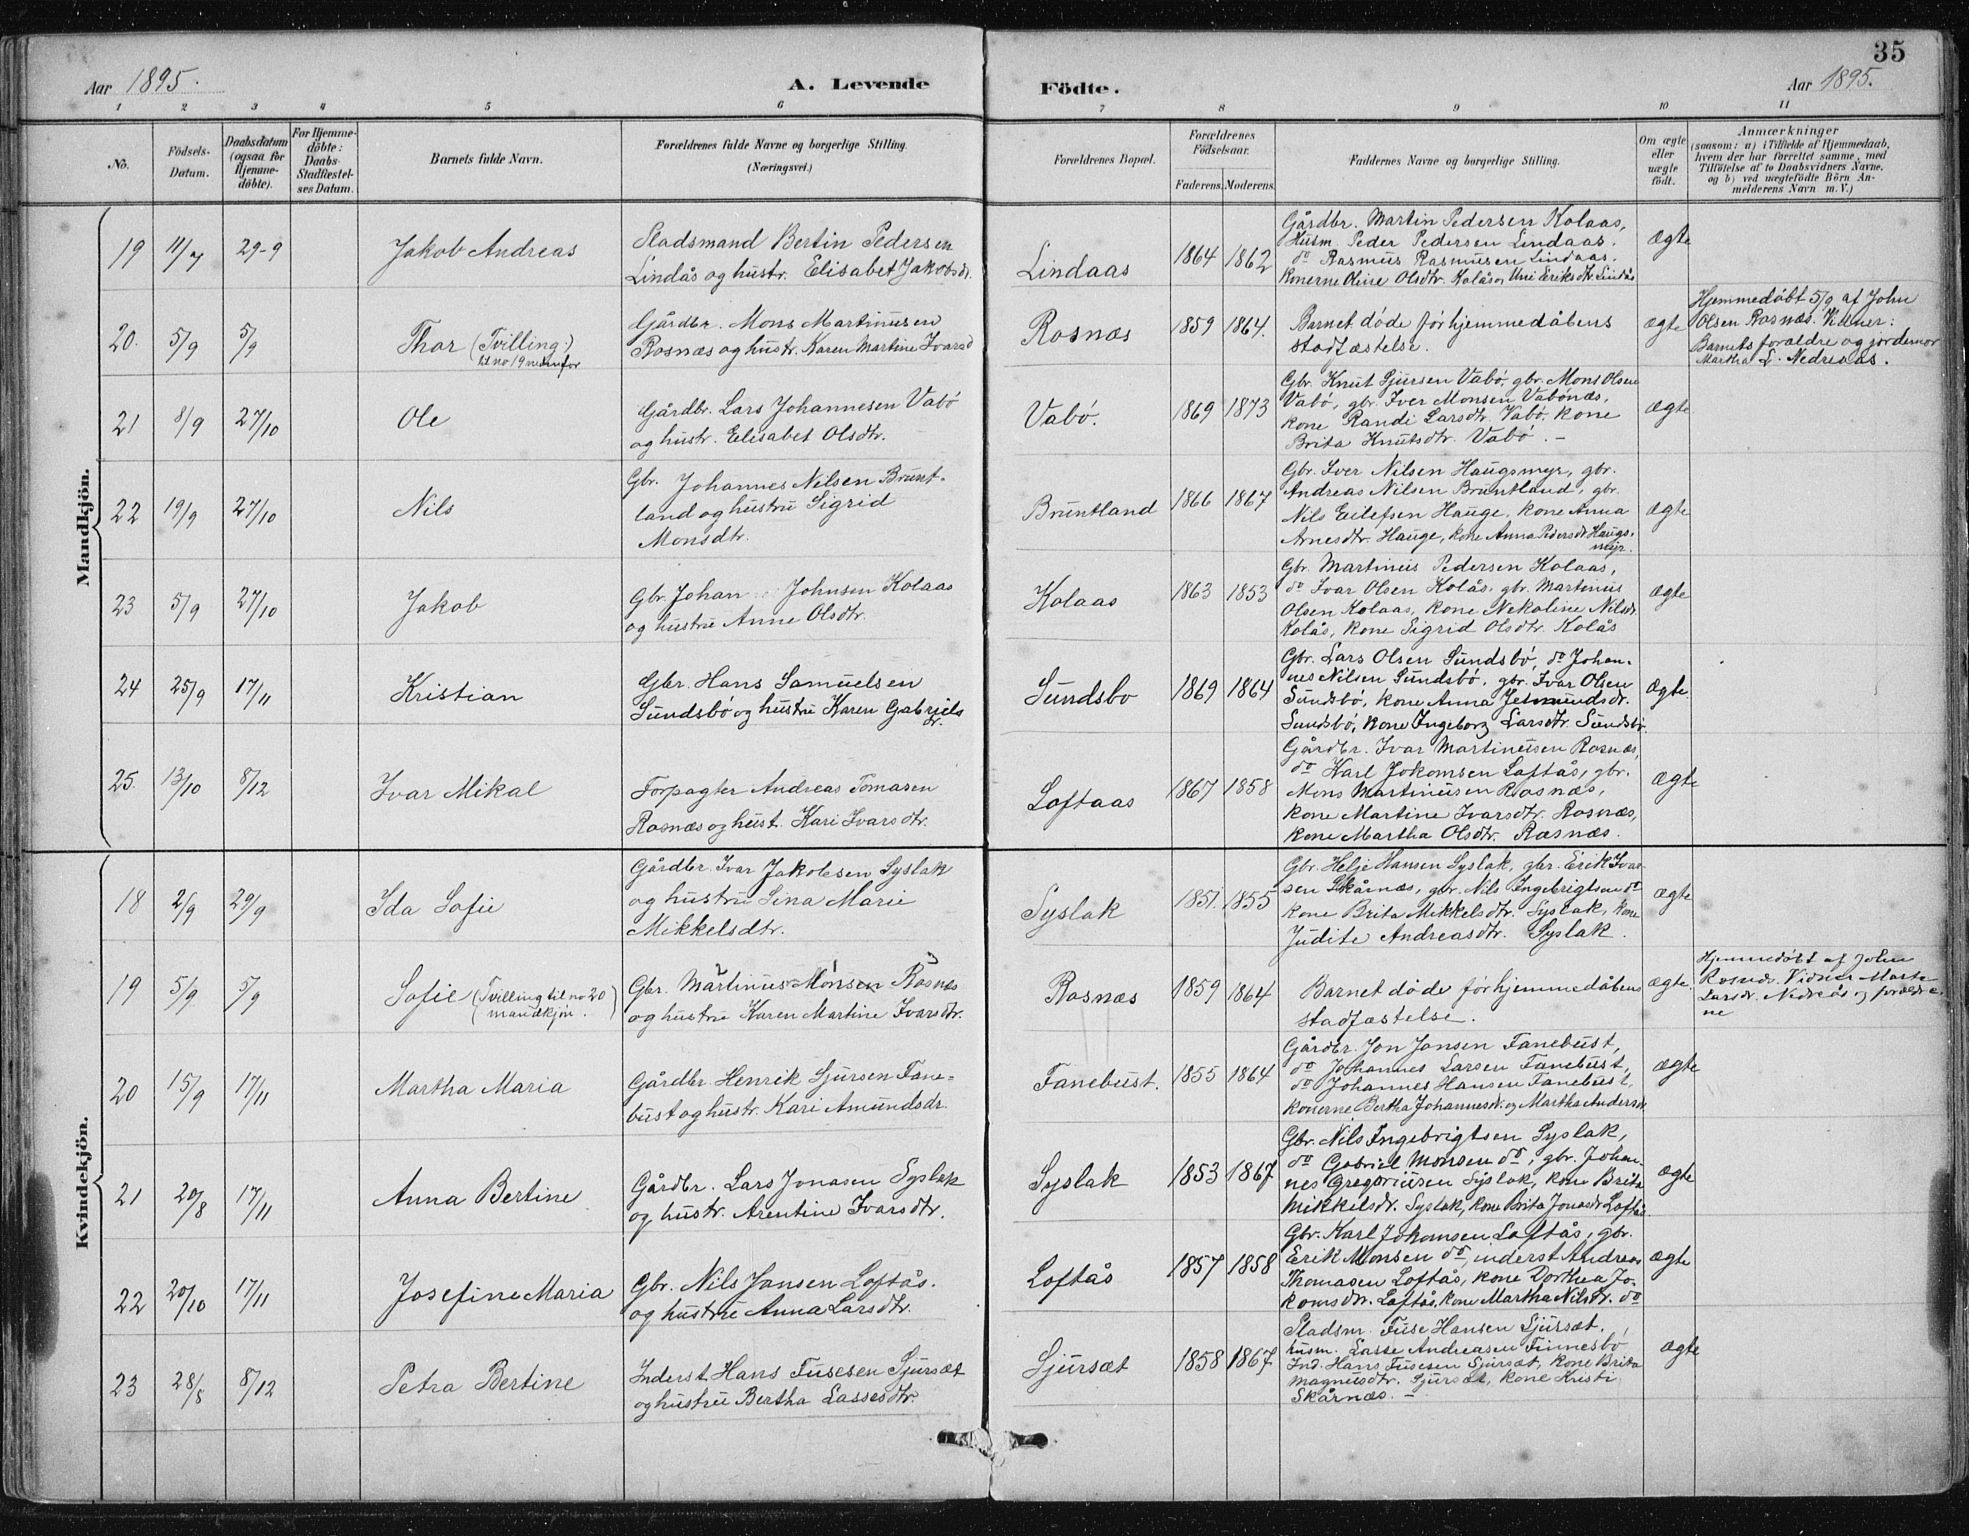 35
Aar 1895. A. Levende Födte. Aar 1895.
1 2 3 4 5 6 7 8 9 10 11
No.
Födsels-Datum.
Daabsdatum (ogsaa for Hjemme-döbte).
For Hjemme-döbte: Daabs-Stadfæstel-ses Datum.
Barnets fulde Navn.
Forældrenes fulde Navne og borgerlige Stilling. (Næringsvei.)
Forældrenes Bopæl.
Forældrenes Födselsaar.
Faderens. Moderens.
Faddernes Navne og borgerlige Stilling.
Om ægte eller uægte födt.
Anmærkninger
(saasom: a) i Tilfælde af Hjemmedaab, hvem der har forrettet samme, med Tilföielse af to Daabsvidners Navne, og b) ved uægtefödte Börn An-melderens Navn m. V.)
Mandkjön.
19 11/7 29-9 Jakob Andreas
Stadsmand Bertin Pedersen
Lindås og hustr. Elisabet Jakobsdr.
Lindaas 1864 1862
Gårdbr. Martin Pedersen Kolaas,
Husm. Peder Pedersen Lindaas.
do Rasmus Rasmusen Lindaas.
Konerne Oline Olsdtr. Kolås og Uni Eriksdtr. Lindås
ægte
20. 5/9 5/9 Thor (Tvilling:)
til no 19 nedenfor
Gårdbr. Mons Martinusen
Rosnæs og hustr. Karen Martine Ivarsd
Rosnæs 1859 1864.
Barnet døde før hjemmedåbens
stadfæstelse.
ægte
Hjemmedöbt 5/9 af John
Olsen Rosnæs. Vidner:
Barnets forældre og jordemor
Martha L. Nedreaas.
21 8/9 27/10 Ole
Gårdbr. Lars Johannesen Vabö
og hustr. Elisabet Olsdtr.
Vabö. 1869 1873
Gbr. Knut Sjursen Vabö, gbr. Mons Olsen
Vabö, gbr. Iver Monsen Vabönæs,
kone Randi Larsdtr. Vabö, kone
Brita Knutsdtr. Vabö. –
ægte
22 19/9 27/10 Nils
Gbr. Johannes Nilsen Brunt-
land og hustru Sigrid
Monsdtr.
Bruntland 1866 1867
Gbr. Iver Nilsen Haugsmyr, gbr.
Andreas Nilsen Bruntland, gbr.
Nils Eilefsen Hauge, kone Anna
Arnesdtr. Hauge, kone Anna Pedersdr. Haugs-
myr.
ægte
23 5/9 27/10 Jakob
Gbr. Johan Johnsen Kolaas
og hustru Anne Olsdtr.
Kolaas 1863 1853
Gbr. Martinus Pedersen Kolaas,
do Ivar Olsen Kolås, gbr. Martinus
Olsen Kolaas, kone Nekoline Nilsdr.
Kolås, kone Sigrid Olsdtr. Kolås
ægte
24 25/9 17/11 Kristian
Gbr. Hans Samuelsen
Sundsbö og hustru Karen Gabriels
dr.
Sundsbo 1869 1864
Gbr. Lars Olsen Sundsbö, do Johan-
nes Nilsen Sundsbö, gbr. Ivar Olsen
Sundsbö, kone Anna Jetmundsdr.
Sundsbö, kone Ingeborg Larsdtr. Sundsbö.
ægte
25. 13/10 8/12 Ivar Mikal
Forpagter Andreas Tomasen
Rosnæs og hust. Kari Ivarsdtr.
Loftaas 1867 1858
Gårdbr. Ivar Martinusen Rosnæs,
do Karl Jokomsen Loftås, gbr.
Mons Martinusen Rosnæs,
kone Martine Ivarsdtr. Rosnæs,
kone Martha Olsdtr. Rosnæs.
ægte
Kvindekjön.
18 2/9 29/9 Ida Sofie
Gårdbr. Ivar Jakobsen Syslak
og hustru Sina Marie
Mikkelsdtr.
Syslak 1851. 1855
Gbr. Helje Hansen Syslak, gbr. Erik Ivar-
sen Skårnæs, gbr. Nils Ingebrigtsen do
kone Brita Mikkelsdtr. Syslak, kone
Judite Andreasdtr. Syslak.
ægte
19 5/9 5/9 Sofie (Tvilling til no 20
mandkjön.)
Gbr. Martinus Monsen Rosnæs
og hustru Karen Martine Ivarsdtr.
Rosnæs 1859 1864
Barnet døde før hjemmedåbens
stadfæstelse.
ægte.
Hjemmedöbt af John
Rosnæs. Vidner Marta
Larsdr. Nedreås og forældre-
ne
20 15/9 17/11 Martha Maria
Gårdbr. Henrik Sjursen Fane-
bust og hustr. Kari Amundsdr.
Fanebust. 1855 1864
Gårdbr. Jon Jonsen Fanebust,
do Johannes Larsen Fanebust,
do Johannes Hansen Fanebust,
konerne Bertha Johannesdr. og Martha Andersdr.
ægte
21 20/8 17/11 Anna Bertine
Gårdbr. Lars Jonasen Syslak
og hustr. Arentine Ivarsdtr.
Syslak 1853 1867
Gbr. Nils Ingebrigtsen Syslak,
do Gabriel Monsen do, gbr. Johan-
nes Gregoriusen Syslak, kone Brita
Mikkelsdr. Syslak, kone Brita Jonasdr. Loftås.
ægte
22 20/10 17/11 Josefine Maria
Gbr. Nils Jansen Loftås.
og hustru Anna Larsdtr.
Loftås 1857 1858
Gbr. Karl Jokomsen Loftås, gbr.
Erik Monsen do, inderst Andreas
Thomasen Loftås, kone Dorthea Jo-
komsdr. Loftås, kone Martha Nilsdr. do
ægte
23 28/8 8/12 Petra Bertine
Inderst Hans Fusesen Sjursæt
og hustru Bertha Lassesdtr.
Sjursæt 1858 1867
Stadsm. Fuse Hansen Sjursæt,
husm. Lasse Andreasen Finnesbö
Ind. Hans Fusesen Sjursæt, kone Brita
Magnusdtr. Sjursæt, kone Kristi
Skårnæs. –
ægte